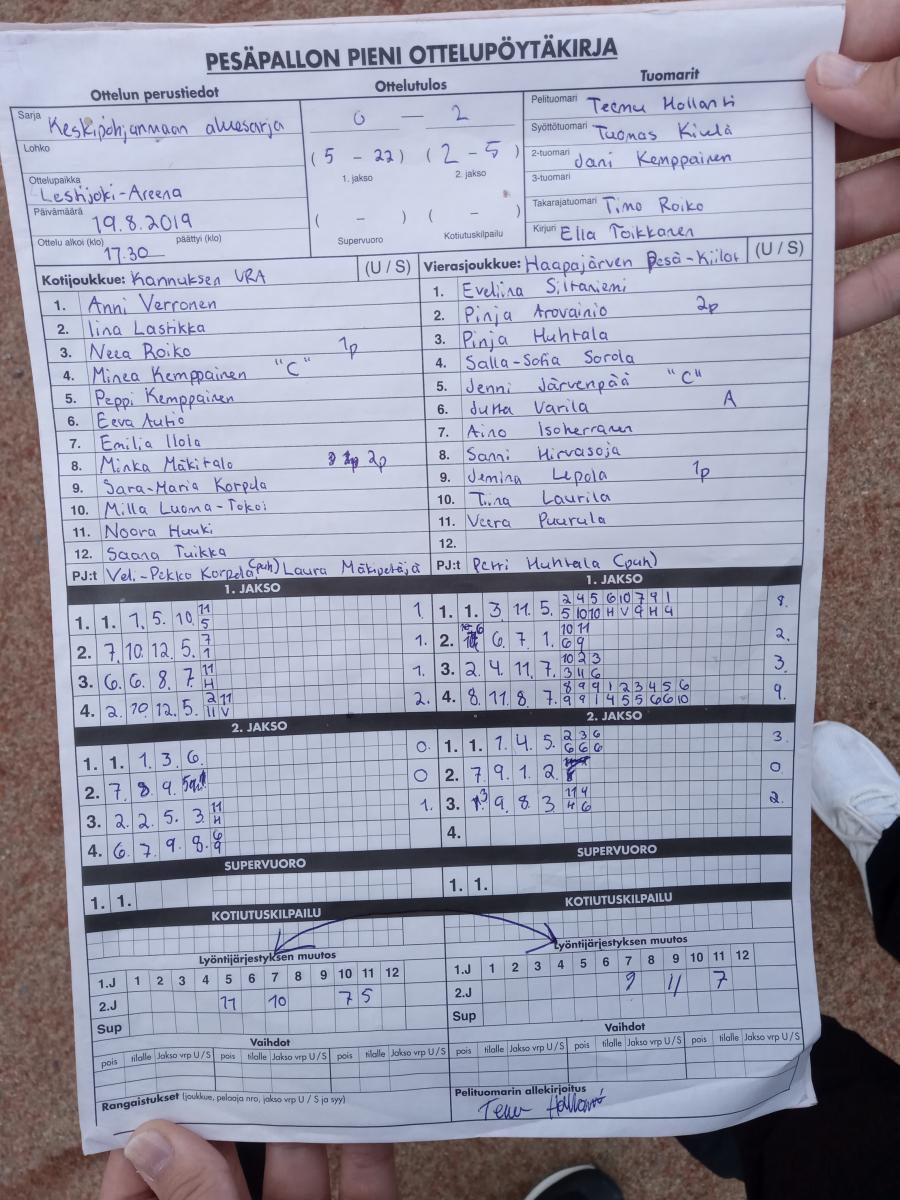 PESÄPALLON PIENI OTTELUPÖYTÄKIRJA
Ottelun perustiedot
Ottelutulos
Tuomarit
Sarja Keskipohjanmaan aluesarja
Lohko
Ottelupaikka Lestijoki-Areena
Päivämäärä 19.8.2019
Ottelu alkoi (klo) 17.30 päättyi (klo)
0 — 2
( 5 - 22 ) ( 2 - 5 )
1. jakso 2. jakso
( - ) ( - )
Supervuoro Kotiutuskilpailu
Pelituomari Teemu Hollanti
Syöttötuomari Tuomas Kivelä
2-tuomari Jani Kemppainen
3-tuomari
Takarajatuomari Timo Roiko
Kirjuri Ella Toikkanen
Kotijoukkue: Kannuksen URA (U / S)
1. Anni Verronen
2. Iina Lastikka
3. Neea Roiko 1p
4. Minea Kemppainen "C"
5. Peppi Kemppainen
6. Eeva Autio
7. Emilia Ilola
8. Minka Mäkitalo 2p
9. Sara-Maria Korpela
10. Milla Luoma-Tokoi
11. Noora Huuki
12. Saana Tuikka
PJ:t Veli-Pekko Korpela (puh) Laura Mäkipetäjä
Vierasjoukkue: Haapajärven Pesä-Kiilat (U / S)
1. Eveliina Siltaniemi
2. Pinja Arovainio 2p
3. Pinja Huhtala
4. Salla-Sofia Sorola
5. Jenni Järvenpää "C"
6. Jutta Varila A
7. Aino Isoherranen
8. Sanni Hirvasoja
9. Jemina Lepola 1p
10. Tiina Laurila
11. Veera Puurula
12.
PJ:t Perri Huhtala (puh)
1. JAKSO
1. 1. 7. 5. 10. 11 5 1.
2. 7. 10. 12. 5. 7 1 1.
3. 6. 6. 8. 7. 11 H 1.
4. 2. 10. 12. 5. 2 11 11 V 2.
2. JAKSO
1. 1. 1. 3. 6. 0.
2. 7. 8. 9. 0
3. 2. 2. 5. 3. 11 H 1.
4. 6. 7. 9. 8. 6 9
SUPERVUORO
1. 1.
KOTIUTUSKILPAILU
1. JAKSO
1. 1. 3. 11. 5. 2 4 5 6 10 7 9 1 5 10 10 H V 9 H 4 8.
2. 6. 7. 1. 10 11 6 9 2.
3. 2. 4. 11. 7. 10 2 3 3 4 6 3.
4. 8. 11. 8. 7. 8 9 9 1 2 3 4 5 6 9 9 1 4 5 5 6 6 10 9.
2. JAKSO
1. 1. 7. 4. 5. 2 3 6 6 6 6 3.
2. 7. 9. 1. 2. 0
3. 9. 8. 3 11 4 4 6 2.
4.
SUPERVUORO
1. 1.
KOTIUTUSKILPAILU
Lyöntijärjestyksen muutos
1.J 1 2 3 4 5 6 7 8 9 10 11 12
2.J 11 10 7 5
Sup
Vaihdot
pois tilalle Jakso vrp U / S pois tilalle Jakso vrp U / S
Rangaistukset (joukkue, pelaaja nro, jakso vrp U / S ja syy)
Lyöntijärjestyksen muutos
1.J 1 2 3 4 5 6 7 8 9 10 11 12
2.J 9 11 7
Sup
Vaihdot
pois tilalle Jakso vrp U / S pois tilalle Jakso vrp U / S pois tilalle Jakso vrp U / S
Pelituomarin allekirjoitus